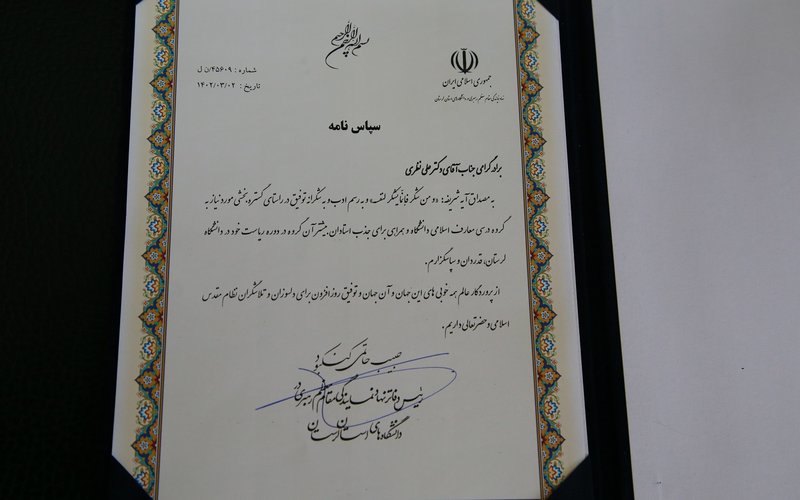 بسم الله الرحمن الرحیم
جمهوری اسلامی ایران
نهاد نمایندگی مقام معظم رهبری در دانشگاه‌های استان لرستان
شماره : ۴۵۶۰۹/ن ل
تاریخ : ۱۴۰۲/۰۳/۰۲
سپاس نامه
برادر گرامی جناب آقای دکتر علی نظری
به مصداق آیه شریفه: «و من شکر فانما یشکر لنفسه» و به رسم ادب و به شکرانه توفیق در راستای گستره بخشی مورد نیاز به
گروه درسی معارف اسلامی دانشگاه و همراهی برای جذب استادان بیشتر آن گروه در دوره ریاست خود در دانشگاه
لرستان، قدردان و سپاسگزارم.
از پروردگار عالم همه خوبی های این جهان و آن جهان و توفیق روزافزون برای دلسوزان و تلاشگران نظام مقدس
اسلامی و حضرتعالی داریم.
حبیب حاتمی کنکبود
رئیس دفاتر نهاد نمایندگی مقام معظم رهبری در
دانشگاه‌های استان لرستان